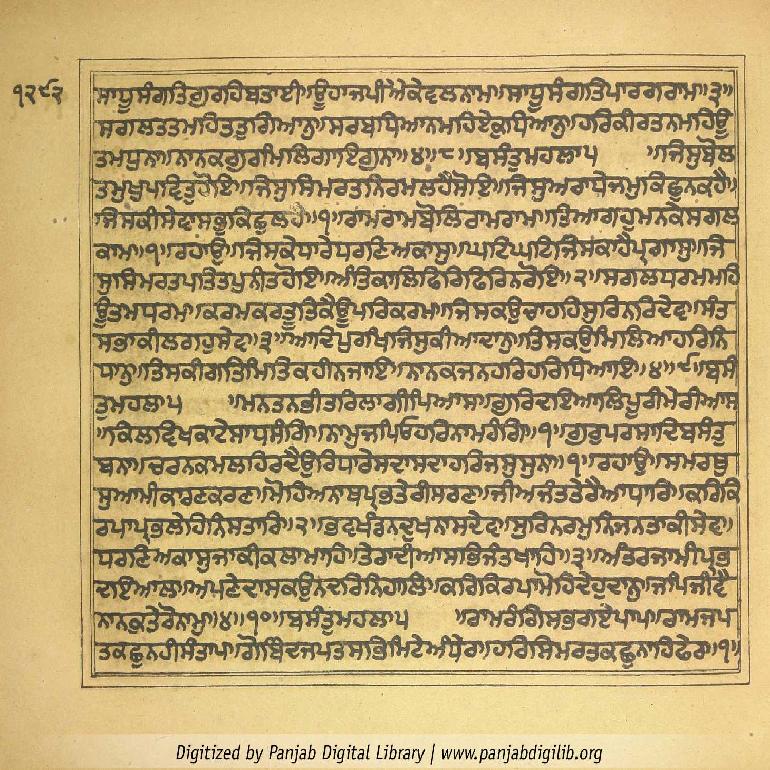 ੧੨੯੨
ਸਾਧੂਸੰਗਤਿਗੁਰਹਿਬਤਾਈ॥ਊਹਾਜਪੀਐਕੇਵਲਨਾਮ॥ਸਾਧੂਸੰਗਤਿਪਾਰਗਰਾਮ॥੩॥
ਸਗਲਤਤਮਹਿਤਤੁਗਿਆਨੁ॥ਸਰਬਧਿਆਨਮਹਿਏਕੁਧਿਆਨੁ॥ਹਰਿਕੀਰਤਨਮਹਿਊ
ਤਮਧੁਨਾ॥ਨਾਨਕਗੁਰਮਿਲਿਗਾਇਗੁਨਾ॥੪॥੮॥ਬਸੰਤੁਮਹਲਾ੫ ॥ਜਿਸੁਬੋਲ
ਤਮੁਖੁਪਵਿਤੁਹੋਇ॥ਜਿਸੁਸਿਮਰਤਨਿਰਮਲਹੈਸੋਇ॥ਜਿਸੁਅਰਾਧੇਜਮੁਕਿਛੁਨਕਹੈ॥
ਜਿਸਕੀਸੇਵਾਸਭੁਕਿਛੁਲਹੈ॥੧॥ਰਾਮਰਾਮਬੋਲਿਰਾਮਰਾਮ॥ਤਿਆਗਹੁਮਨਕੇਸਗਲ
ਕਾਮ॥੧॥ਰਹਾਉ॥ਜਿਸਕੇਧਾਰੇਧਰਣਿਅਕਾਸੁ॥ਘਟਿਘਟਿਜਿਸਕਾਹੈਪ੍ਰਗਾਸੁ॥ਜਿ
ਸੁਸਿਮਰਤਪਤਿਤਪੁਨੀਤਹੋਇ॥ਅੰਤਕਾਲਿਫਿਰਿਫਿਰਿਨਰੋਇ॥੨॥ਸਗਲਧਰਮਮਹਿ
ਊਤਮਧਰਮ॥ਕਰਮਕਰਤੂਤਿਕੈਊਪਰਿਕਰਮ॥ਜਿਸਕਉਚਾਹਹਿਸੁਰਿਨਰਦੇਵ॥ਸੰਤ
ਸਭਾਕੀਲਗਹੁਸੇਵ॥੩॥ਆਦਿਪੁਰਖਿਜਿਸੁਕੀਆਦਾਨੁ॥ਤਿਸਕਉਮਿਲਿਆਹਰਿਨਿ
ਧਾਨੁ॥ਤਿਸਕੀਗਤਿਮਿਤਿਕਹੀਨਜਾਇ॥ਨਾਨਕਜਨਹਰਿਹਰਿਧਿਆਇ॥੪॥੯॥ਬਸੰ
ਤੁਮਹਲਾ੫ ॥ਮਨਤਨਭੀਤਰਿਲਾਗੀਪਿਆਸ॥ਗੁਰਿਦਇਆਲਿਪੂਰੀਮੇਰੀਆਸ
॥ਕਿਲਵਿਖਕਾਟੇਸਾਧਸੰਗਿ॥ਨਾਮੁਜਪਿਓਹਰਿਨਾਮਰੰਗਿ॥੧॥ਗੁਰਪਰਸਾਦਿਬਸੰਤੁ
ਬਨਾ॥ਚਰਨਕਮਲਹਿਰਦੈਉਰਿਧਾਰੇਸਦਾਸਦਾਹਰਿਜਸੁਸੁਨਾ॥੧॥ਰਹਾਉ॥ਸਮਰਥ
ਸੁਆਮੀਕਾਰਣਕਰਣ॥ਮੋਹਿਅਨਾਥਪ੍ਰਭਤੇਰੀਸਰਣ॥ਜੀਅਜੰਤਤੇਰੈਆਧਾਰਿ॥ਕਰਿਕਿ
ਰਪਾਪ੍ਰਭਲੇਹਿਨਿਸਤਾਰਿ॥੨॥ਭਵਖੰਡਨਦੁਖਨਾਸਦੇਵ॥ਸੁਰਿਨਰਮੁਨਿਜਨਤਾਕੀਸੇਵ॥
ਧਰਣਿਅਕਾਸੁਜਾਕੀਕਲਾਮਾਹਿ॥ਤੇਰਾਦੀਆਸਭਿਜੰਤਖਾਹਿ॥੩॥ਅੰਤਰਜਾਮੀਪ੍ਰਭ
ਦਇਆਲ॥ਅਪਣੇਦਾਸਕਉਨਦਰਿਨਿਹਾਲਿ॥ਕਰਿਕਿਰਪਾਮੋਹਿਦੇਹੁਦਾਨੁ॥ਜਪਿਜੀਵੈ
ਨਾਨਕੁਤੇਰੋਨਾਮੁ॥੪॥੧੦॥ਬਸੰਤੁਮਹਲਾ੫ ॥ਰਾਮਰੰਗਿਸਭਗਏਪਾਪ॥ਰਾਮਜਪ
ਤਕਛੁਨਹੀਸੰਤਾਪ॥ਗੋਬਿੰਦਜਪਤਸਭਿਮਿਟੇਅੰਧੇਰ॥ਹਰਿਸਿਮਰਤਕਛੁਨਾਹਿਫੇਰ॥੧॥
Digitized by Panjab Digital Library | www.panjabdigilib.org